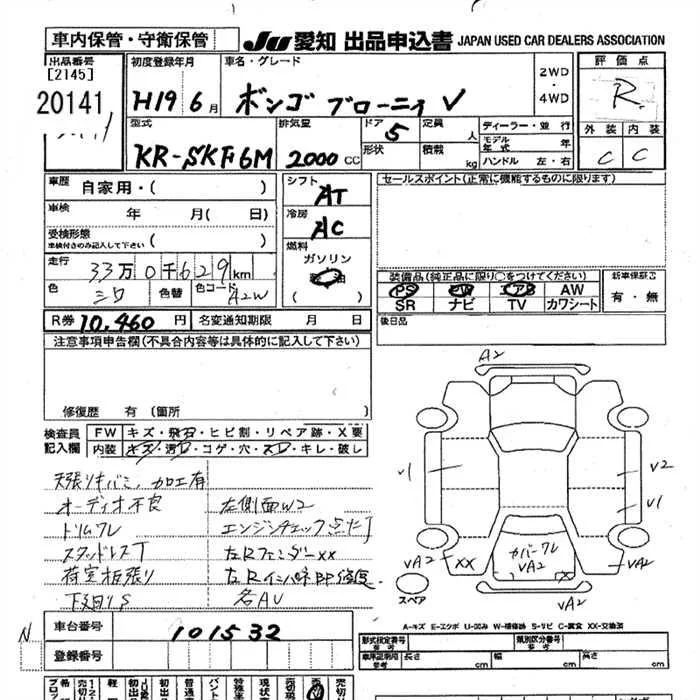 車内保管・守衛保管
JU 愛知 出品申込書 JAPAN USED CAR DEALERS ASSOCIATION
出品番号
[2145]
20141
初度登録年月
H19 6月
車名・グレード
ボンゴ ブローニィ V
2WD
・
4WD
評価点
R
外装 内装
C C
型式
KR-SKF6M
排気量
2000 CC
ドア 5
形状
定員 人
積載 kg
ディーラー・並行
モデル年式 年
ハンドル 左・右
車歴 自家用・( )
車検 年 月( 日)
受検形態
車検付きのみ記入して下さい ( )
走行 33万0千629km
色 シロ 色替 色コード A2W
シフト
AT
冷房
AC
燃料
ガソリン
セールスポイント(正常に機能するものに限ります)
装備品(純正品に限り○をつけてください)
PS PW エアB AW
SR ナビ TV カワシート
新車保証書
有・無
後日品
R券 10,460円 名変通知期限 月 日
注意事項申告欄(不具合内容等は具体的に記入して下さい)
修復歴 有 (箇所
検査員
記入欄
FW キズ・飛石・ヒビ割・リペア跡・X要
内装 キズ・汚レ・コゲ・穴・スレ・キレ・破レ
天張りキバミ、加工有
オーディオ不良 左側面W2
トリムワレ エンジンチェック点灯
スタッドレスT 左Rフェンダーxx
荷室板張り
下廻りS 各AU
A2
V1
V2
V1
VA2
XX
カバーワレ
VA2
VA2
VA2
スペア
A-キズ E-エクボ U-凹み W-補修跡 S-サビ C-腐食 XX-交換済
N
車台番号 101532
登録番号
型式指定番号
参考
類別区分番号
参考
車庫証明用
参考
長さ cm
幅 cm
高さ cm